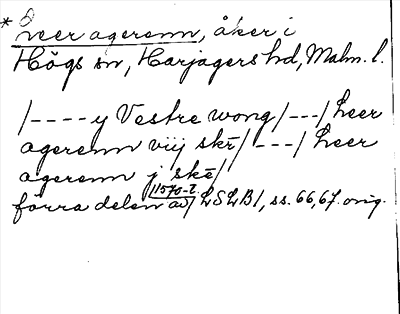 * Över agerenn, åker i
Högs sn, Harjagers hd, Malm. l.
/---- y Vestre wong /---/ heer
agerenn viij skē/ ---/ heer
agerenn j skē/
förra delen av 1570-t./ LSLB1, ss. 66, 67. orig.